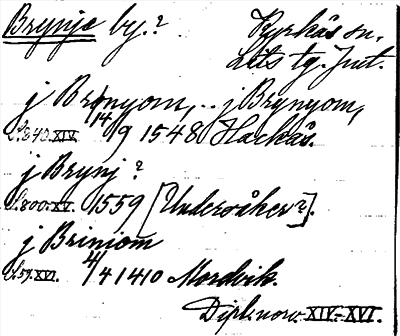 Brynje by.? Kyrkås sn.
Lits tg. Jmt.
j Brynyom, .. j Brynyom,
S. 240. XIV. 14/9 1548 Hackås.
j Brynj ?
S. 800. XV. 1559 [Undersåker?].
j Briniom
S. 59. XVI. 4/4 1410 Mordvik.
Dipl. now. XIV.-XVI.